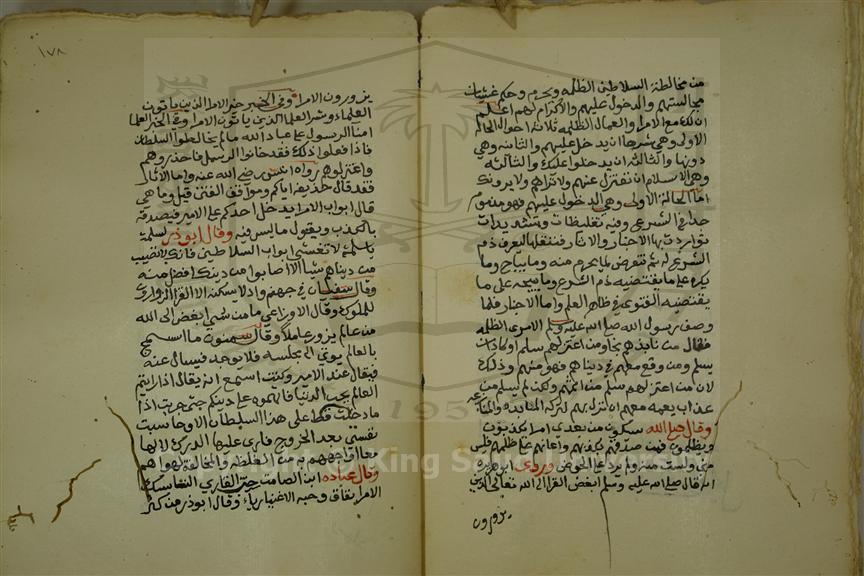 من مخالطة السلاطين الظلمه ويحرم وحكم غشيان
مجالستهم والدخول عليهم والاكرام لهم اعلم
ان لك مع الامرا والعمال الظلمه ثلاثة احوال الحالة
الاولى وهي شرها ان يدخل عليهم والثانيه وهي
دونها والثالثه ان يدخلوا عليك والثالثه
وهي الاسلم ان تعتزل عنهم ولا تراهم ولا يرونك
اما الحالة الاولى وهي الدخول عليهم فهو مذموم
جدا في الشرع وفيه تغليظات وتشديدات
تواردت بها الاخبار والاثار فننقلها لتعرف ذم
الشرع له ثم نتعرض لما يحرم منه وما يباح وما
يكره على ما يقتضيه
يقتضيه الفتوى في ظاهر العلم واما الاخبار فلما
وصف رسول الله صلى الله عليه وسلم الامرا الظلمه
فقال من نابذهم نجا ومن اعتزلهم سلم او كاد ان
يسلم ومن وقع معهم في دنياهم فهو منهم وذلك
لان من اعتزلهم سلم من اثمهم ولكن لم يسلم من
عذاب يعمه معهم ان نزل بهم لتركه المنابذه والمنازعه
وقال صلى الله سيكون من بعدي امرا يكذبون
ويظلمون فمن صدقهم بكذبهم واعانهم على ظلمهم فليس
مني ولست منه ولم يرد على الحوض وروى ابو هريره
انه قال صلى الله عليه وسلم ابغض القرا الى الله تعالى الذين
يزورون
١٧٨
يزورون الامرا وفي الخبر خير الامرا الذين ياتون
العلما وشر العلما الذين ياتون الامرا وفي الخبر العلما
امنا الرسول على عباد الله ما لم يخالطوا السلطان
فاذا فعلوا ذلك فقد خانوا الرسل فاحذروهم
واعتزلوهم رواه انس رضي الله عنه واما الاثار
فقد قال حذيفه اياكم ومواقف الفتن قيل وما هي
قال ابواب الامرا يدخل احدكم على الامير فيصدقه
بالكذب ويقول ما ليس فيه وقال ابو ذر لسلمة
يا سلمة لا تغشى ابواب السلاطين فانك لا تصيب
من دنياهم شيا الا اصابوا من دينك افضل منه
وقال سفيان في جهنم واد لا يسكنه الا القرا الزوارون
للملوك وقال الاوزاعي ما من شيء ابغض الى الله
من عالم يزور عاملا وقال سمنون ما اسمج
بالعالم يوتى الى مجلسه فلا يوجد فيسال عنه
فيقال عند الامير وكنت اسمع انه يقال اذا رايتم
العالم يحب الدنيا فاتهموه على دينكم حتى جربت اذا
ما دخلت قط على هذا السلطان الا وحاسبت
نفسي بعد الخروج فارى عليها الدرك
مع ما اواجههم به من الغلظه والمخالفة لهواهم
وقال عباده ابن الصامت حب القاري الناسك
الامرا نفاق وحبه الاغنيا رياء وقال ابو ذر من كثر